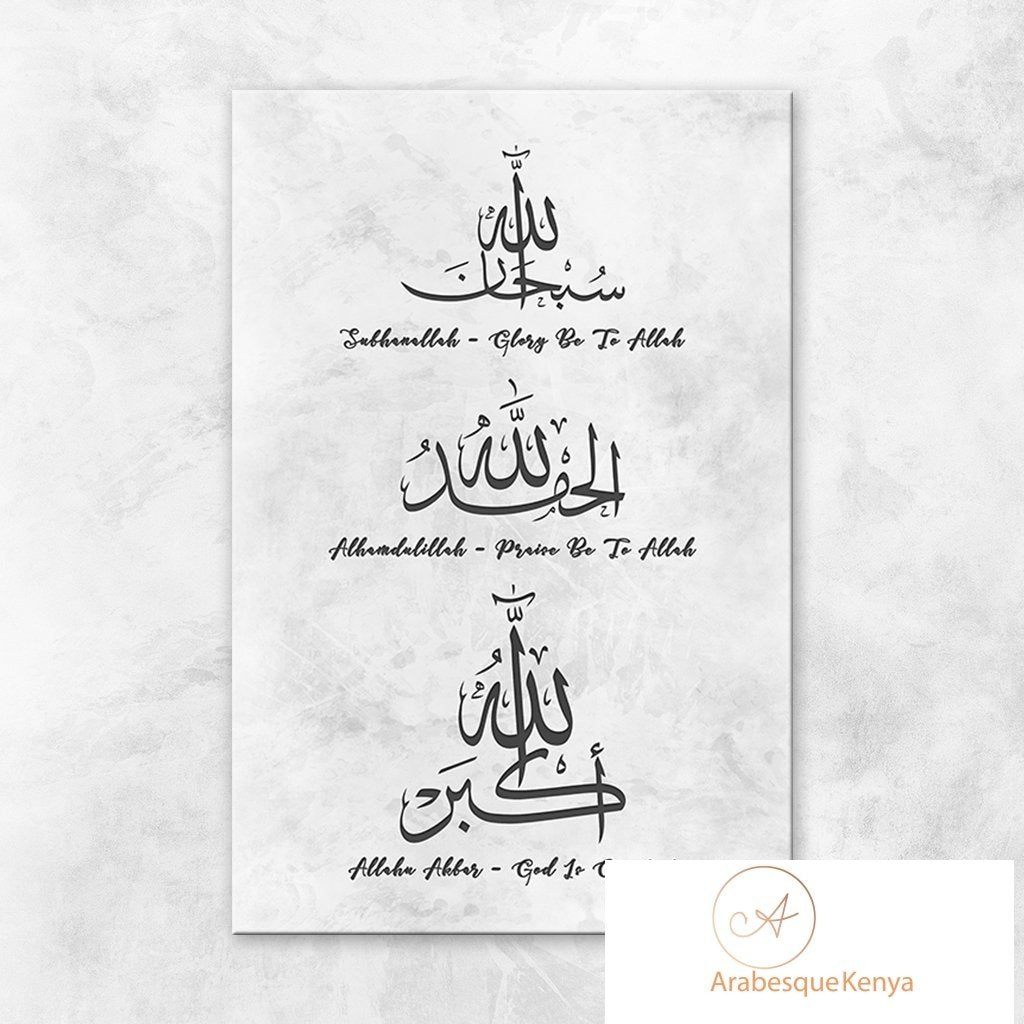 سُبْحَانَ اللّٰه
Subhanallah - Glory Be To Allah
الحَمْدُ لِلّٰهُ
Alhamdulillah - Praise Be To Allah
اللّٰهُ أَكْبَر
Allahu Akbar - God Is
A
ArabesqueKenya